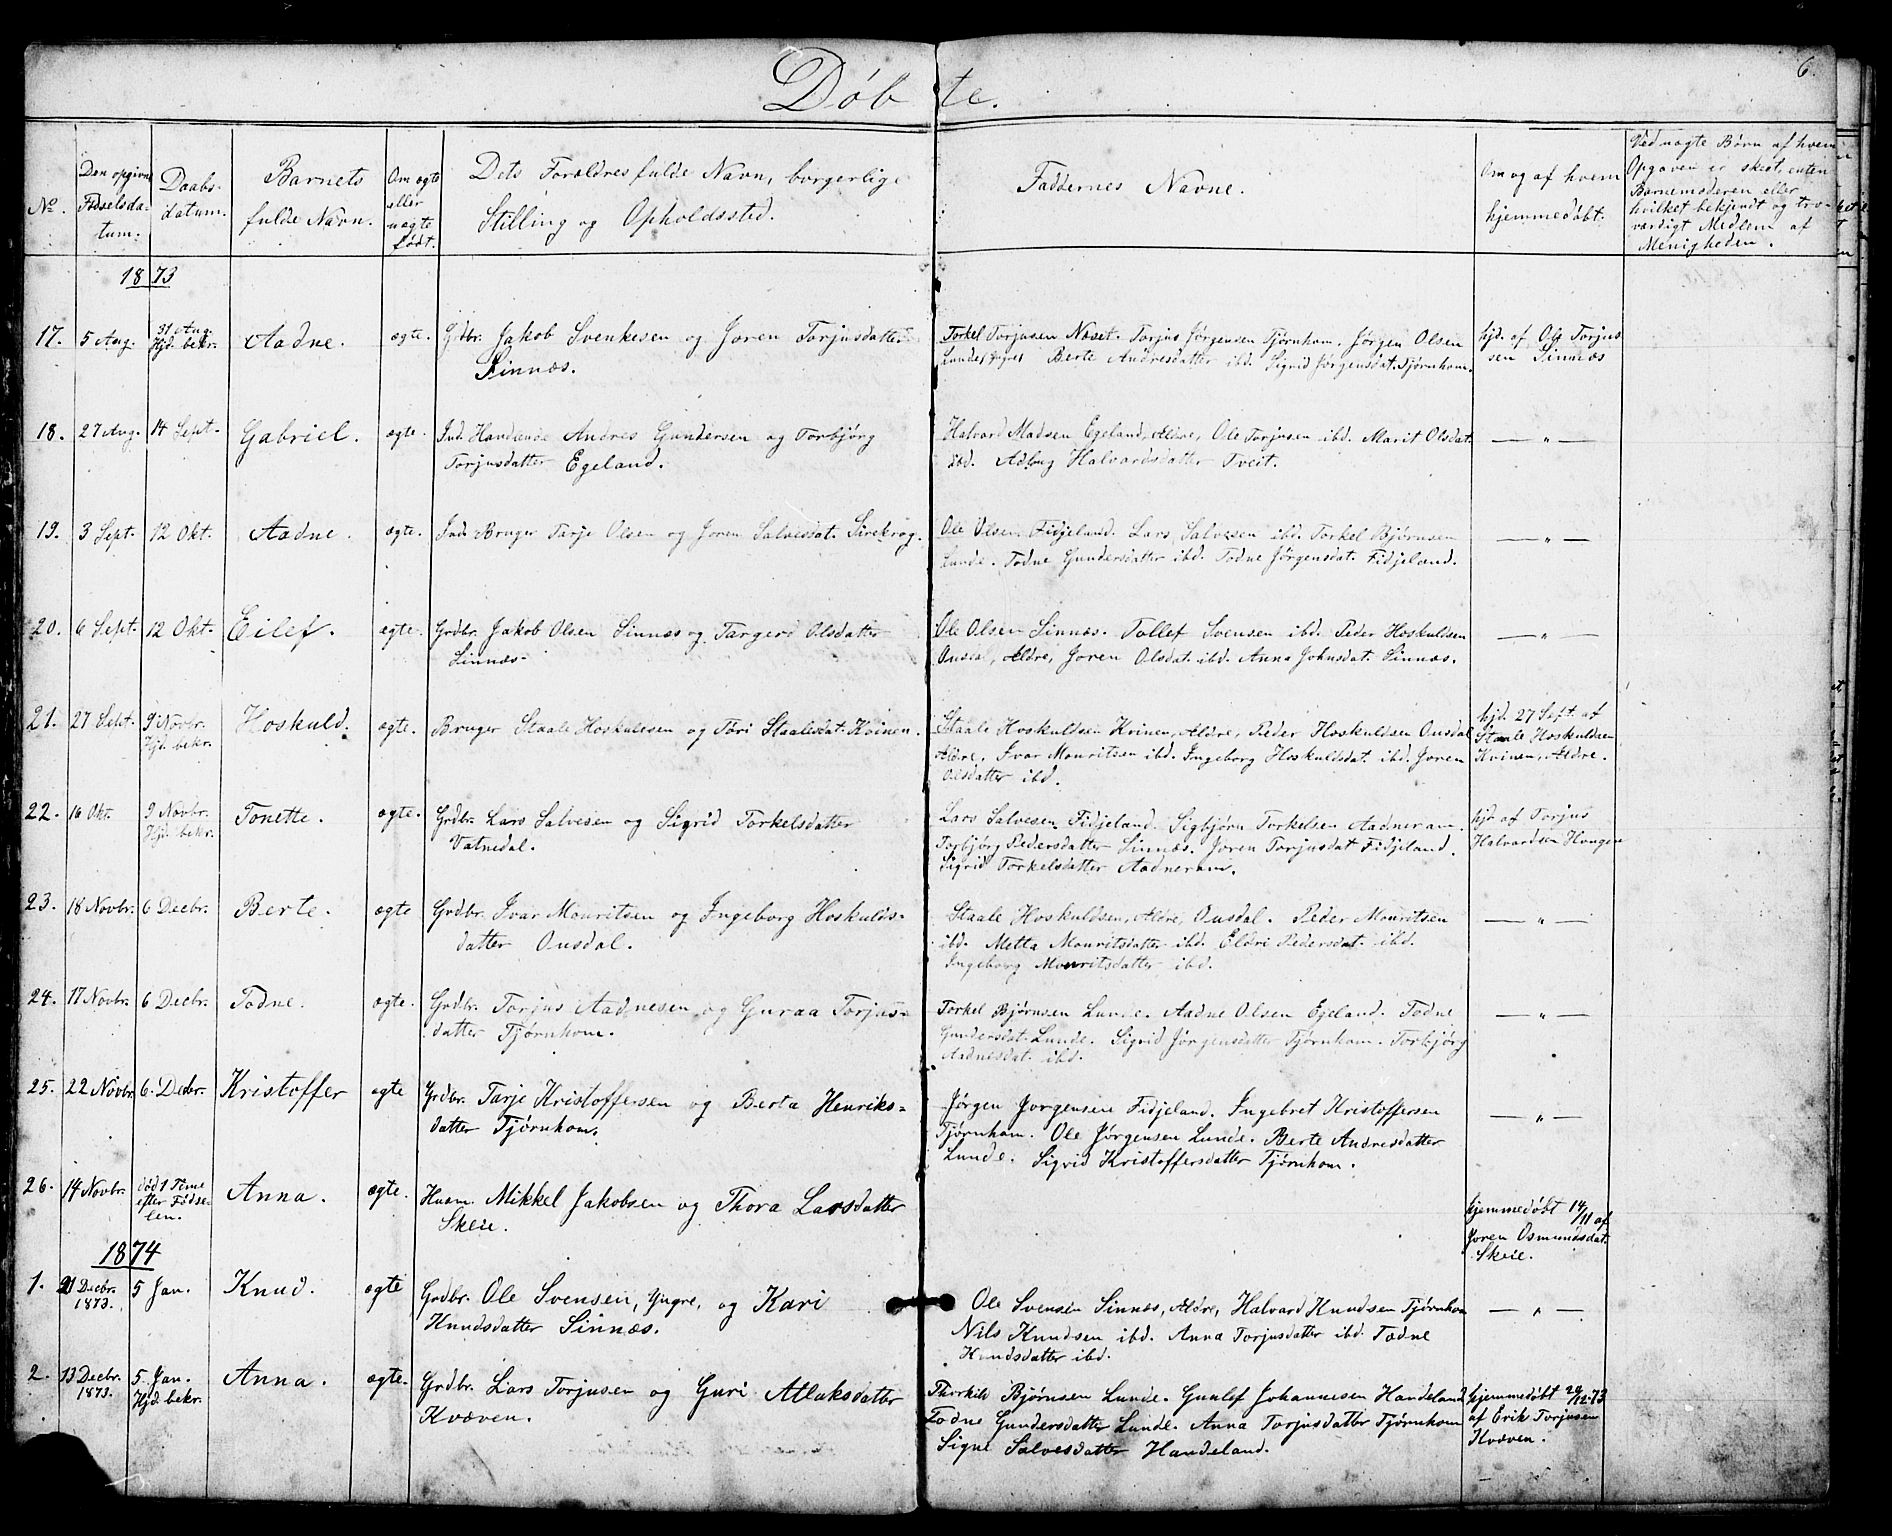 6.
Døbte.
No.
Den opgivne
Fødselsda-
tum.
Daabs-
datum.
Barnets
fulde Navn.
Om ægte
eller
uægte
født.
Dets Forældres fulde Navn, borgerlige
Stilling og Opholdssted.
Faddernes Navne.
Om og af hvem
hjemmedøbt.
Ved uægte Børn af hvem
Opgaven er skeet, enten
Barnemoderen eller
hvilket bekjendt og tro-
værdigt Medlem af
Menigheden.
1873
17. 5 Aug. 31 Aug. Hjd. bekr. Aadne. ægte. Grdbr. Jakob Svenkesen og Joren Torjusdatter
Sinnæs.
Torkel Torjusen Næset. Torjus Jørgensen Tjørnhom. Jørgen Olsen
Lunde, Yngre, Berte Andresdatter ibd. Sigrid Jørgensdat. Tjørnhom.
hjd. af Ole Torjus
sen Sinnæs
18. 27 Aug. 14 Sept. Gabriel. ægte. Ind. Andres Gundersen og Torbjørg
Torjusdatter Egeland.
Halvard Madsen Egeland, Ældre, Ole Torjusen ibd. Marit Olsdat.
ibd. Adbug Halvardsdatter Tveit.
— " —
19. 3 Sept. 12 Okt. Aadne. ægte. Ind. Bruger Tarje Olsen og Joren Salvesdat. Sirekrog.
Ole Olsen Fidjeland. Lars Salvesen ibd. Torkel Bjørnsen
Lunde. Todne Gundersdatter ibd. Todne Jørgensdat. Fidjeland.
— " —
20. 6 Sept. 12 Okt. Eilef. ægte. Grdbr. Jakob Olsen Sinnæs og Targerd Olsdatter
Sinnæs.
Ole Olsen Sinnæs. Tollef Svensen ibd. Peder Hoskuldsen
Ousdal, Ældre, Joren Olsdat. ibd. Anna Johnsdat. Sinnæs.
— " —
21. 27 Sept. 9 Novbr. Hjd. bekr. Hoskuld. ægte. Bruger Staale Hoskuldsen og Tori Staalesdat. Kvinen.
Staale Hoskuldsen Kvinen, Ældre, Peder Hoskuldsen Ousdal
Ældre. Ivar Mouritsen ibd. Ingeborg Hoskuldsdat. ibd. Joren
Olsdatter ibd.
hjd. 27 Sept. af
Staale Hoskuldsen
Kvinen, Ældre.
22. 16 Okt. 9 Novbr. Hjd. bekr. Tonette. ægte. Grdbr. Lars Salvesen og Sigrid Torkelsdatter
Vatnedal.
Lars Salvesen Fidjeland. Sigbjørn Torkelsen Aadneram.
Torbjørg Pedersdatter Sinnæs. Joren Torjusdat Fidjeland.
Sigrid Torkelsdatter Aadneram.
hjd. af Torjus
Halvardsen Hougen
23. 18 Novbr. 6 Decbr. Berte. ægte Grdbr. Ivar Mouritsen og Ingeborg Hoskulds-
datter Ousdal.
Staale Hoskuldsen, Ældre, Ousdal. Peder Mouritsen
ibd. Metta Mouritsdatter ibd. Eldri Pedersdat. ibd.
Ingeborg Mouritsdatter ibd.
— " —
24. 17 Novbr. 6 Decbr. Todne. ægte. Grdbr. Torjus Aadnesen og Guraa Torjus-
datter Tjørnhom.
Torkel Bjørnsen Lunde. Aadne Olsen Egeland. Todne
Gundersdat. Lunde. Sigrid Jørgensdatter Tjørnhom. Torbjørg
Aadnesdat. ibd.
— " —
25. 22 Novbr. 6 Decbr. Kristoffer ægte Grdbr. Tarje Kristoffersen og Berta Henriks-
datter Tjørnhom.
Jørgen Jørgensen Fidjeland. Ingebret Kristoffersen
Tjørnhom. Ole Jørgensen Lunde. Berte Andresdatter
Lunde. Sigrid Kristoffersdatter Tjørnhom.
— " —
26. 14 Novbr. død 1 Time
efter Fødse-
len. Anna. ægte. Husm. Mikkel Jakobsen og Thora Larsdatter
Skeie.
hjemmedøbt 14/11 af
Joren Osmundsdat.
Skeie.
1874
1. 21 Decbr. 1873. 5 Jan. Knud. ægte Grdbr. Ole Svensen, Yngre, og Kari
Knudsdatter Sinnæs.
Ole Svensen Sinnæs, Ældre, Halvard Knudsen Tjørnhom
Nils Knudsen ibd. Anna Torjusdatter ibd. Todne
Knudsdatter ibd.
— " —
2. 13 Decbr. 1873. 5 Jan. Hjd. bekr. Anna. ægte. Grdbr. Lars Torjusen og Guri Atlaksdatter
Kvæven.
Thorkild Bjørnsen Lunde. Gunlef Johannesen Handeland
Todne Gundersdatter Lunde. Anna Torjusdatter Tjørnhom
Signe Salvesdatter Handeland.
hjemmedøbt 20/12-73
af Erik Torjusen
Kvæven.